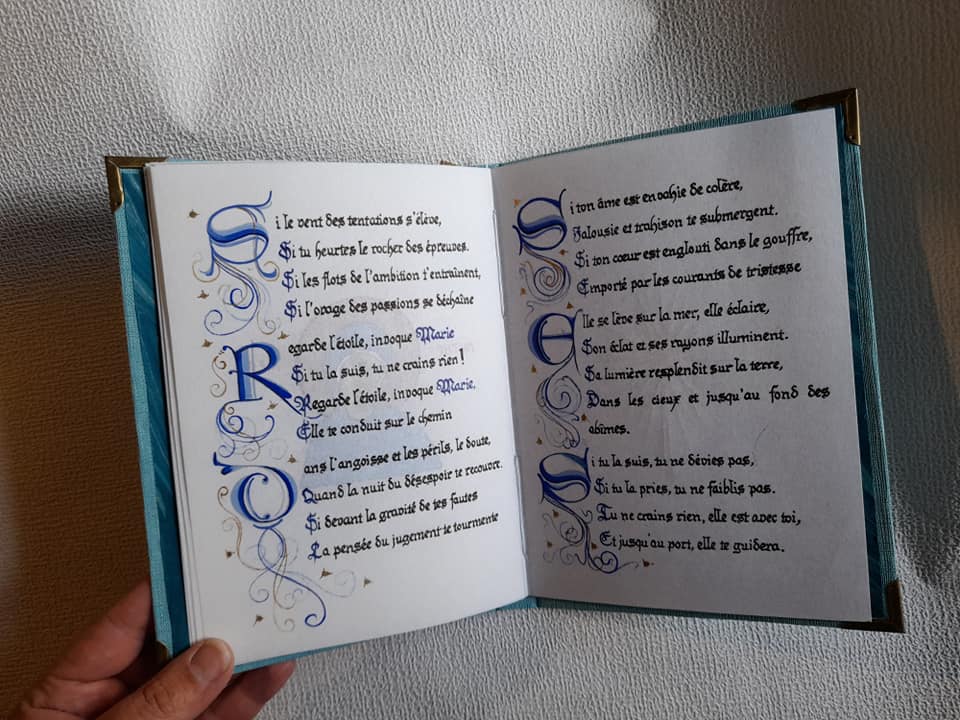 Si le vent des tentations s'élève,
Si tu heurtes le rocher des épreuves.
Si les flots de l'ambition t'entraînent,
Si l'orage des passions se déchaîne
Regarde l'étoile, invoque Marie
Si tu la suis, tu ne crains rien !
Regarde l'étoile, invoque Marie,
Elle te conduit sur le chemin
Dans l'angoisse et les périls, le doute,
Quand la nuit du désespoir te recouvre.
Si devant la gravité de tes fautes
La pensée du jugement te tourmente
Si ton âme est envahie de colère,
Jalousie et trahison te submergent.
Si ton cœur est englouti dans le gouffre,
Emporté par les courants de tristesse
Elle se lève sur la mer, elle éclaire,
Son éclat et ses rayons illuminent.
Sa lumière resplendit sur la terre,
Dans les cieux et jusqu'au fond des
abîmes.
Si tu la suis, tu ne dévies pas,
Si tu la pries, tu ne faiblis pas.
Tu ne crains rien, elle est avec toi,
Et jusqu'au port, elle te guidera.